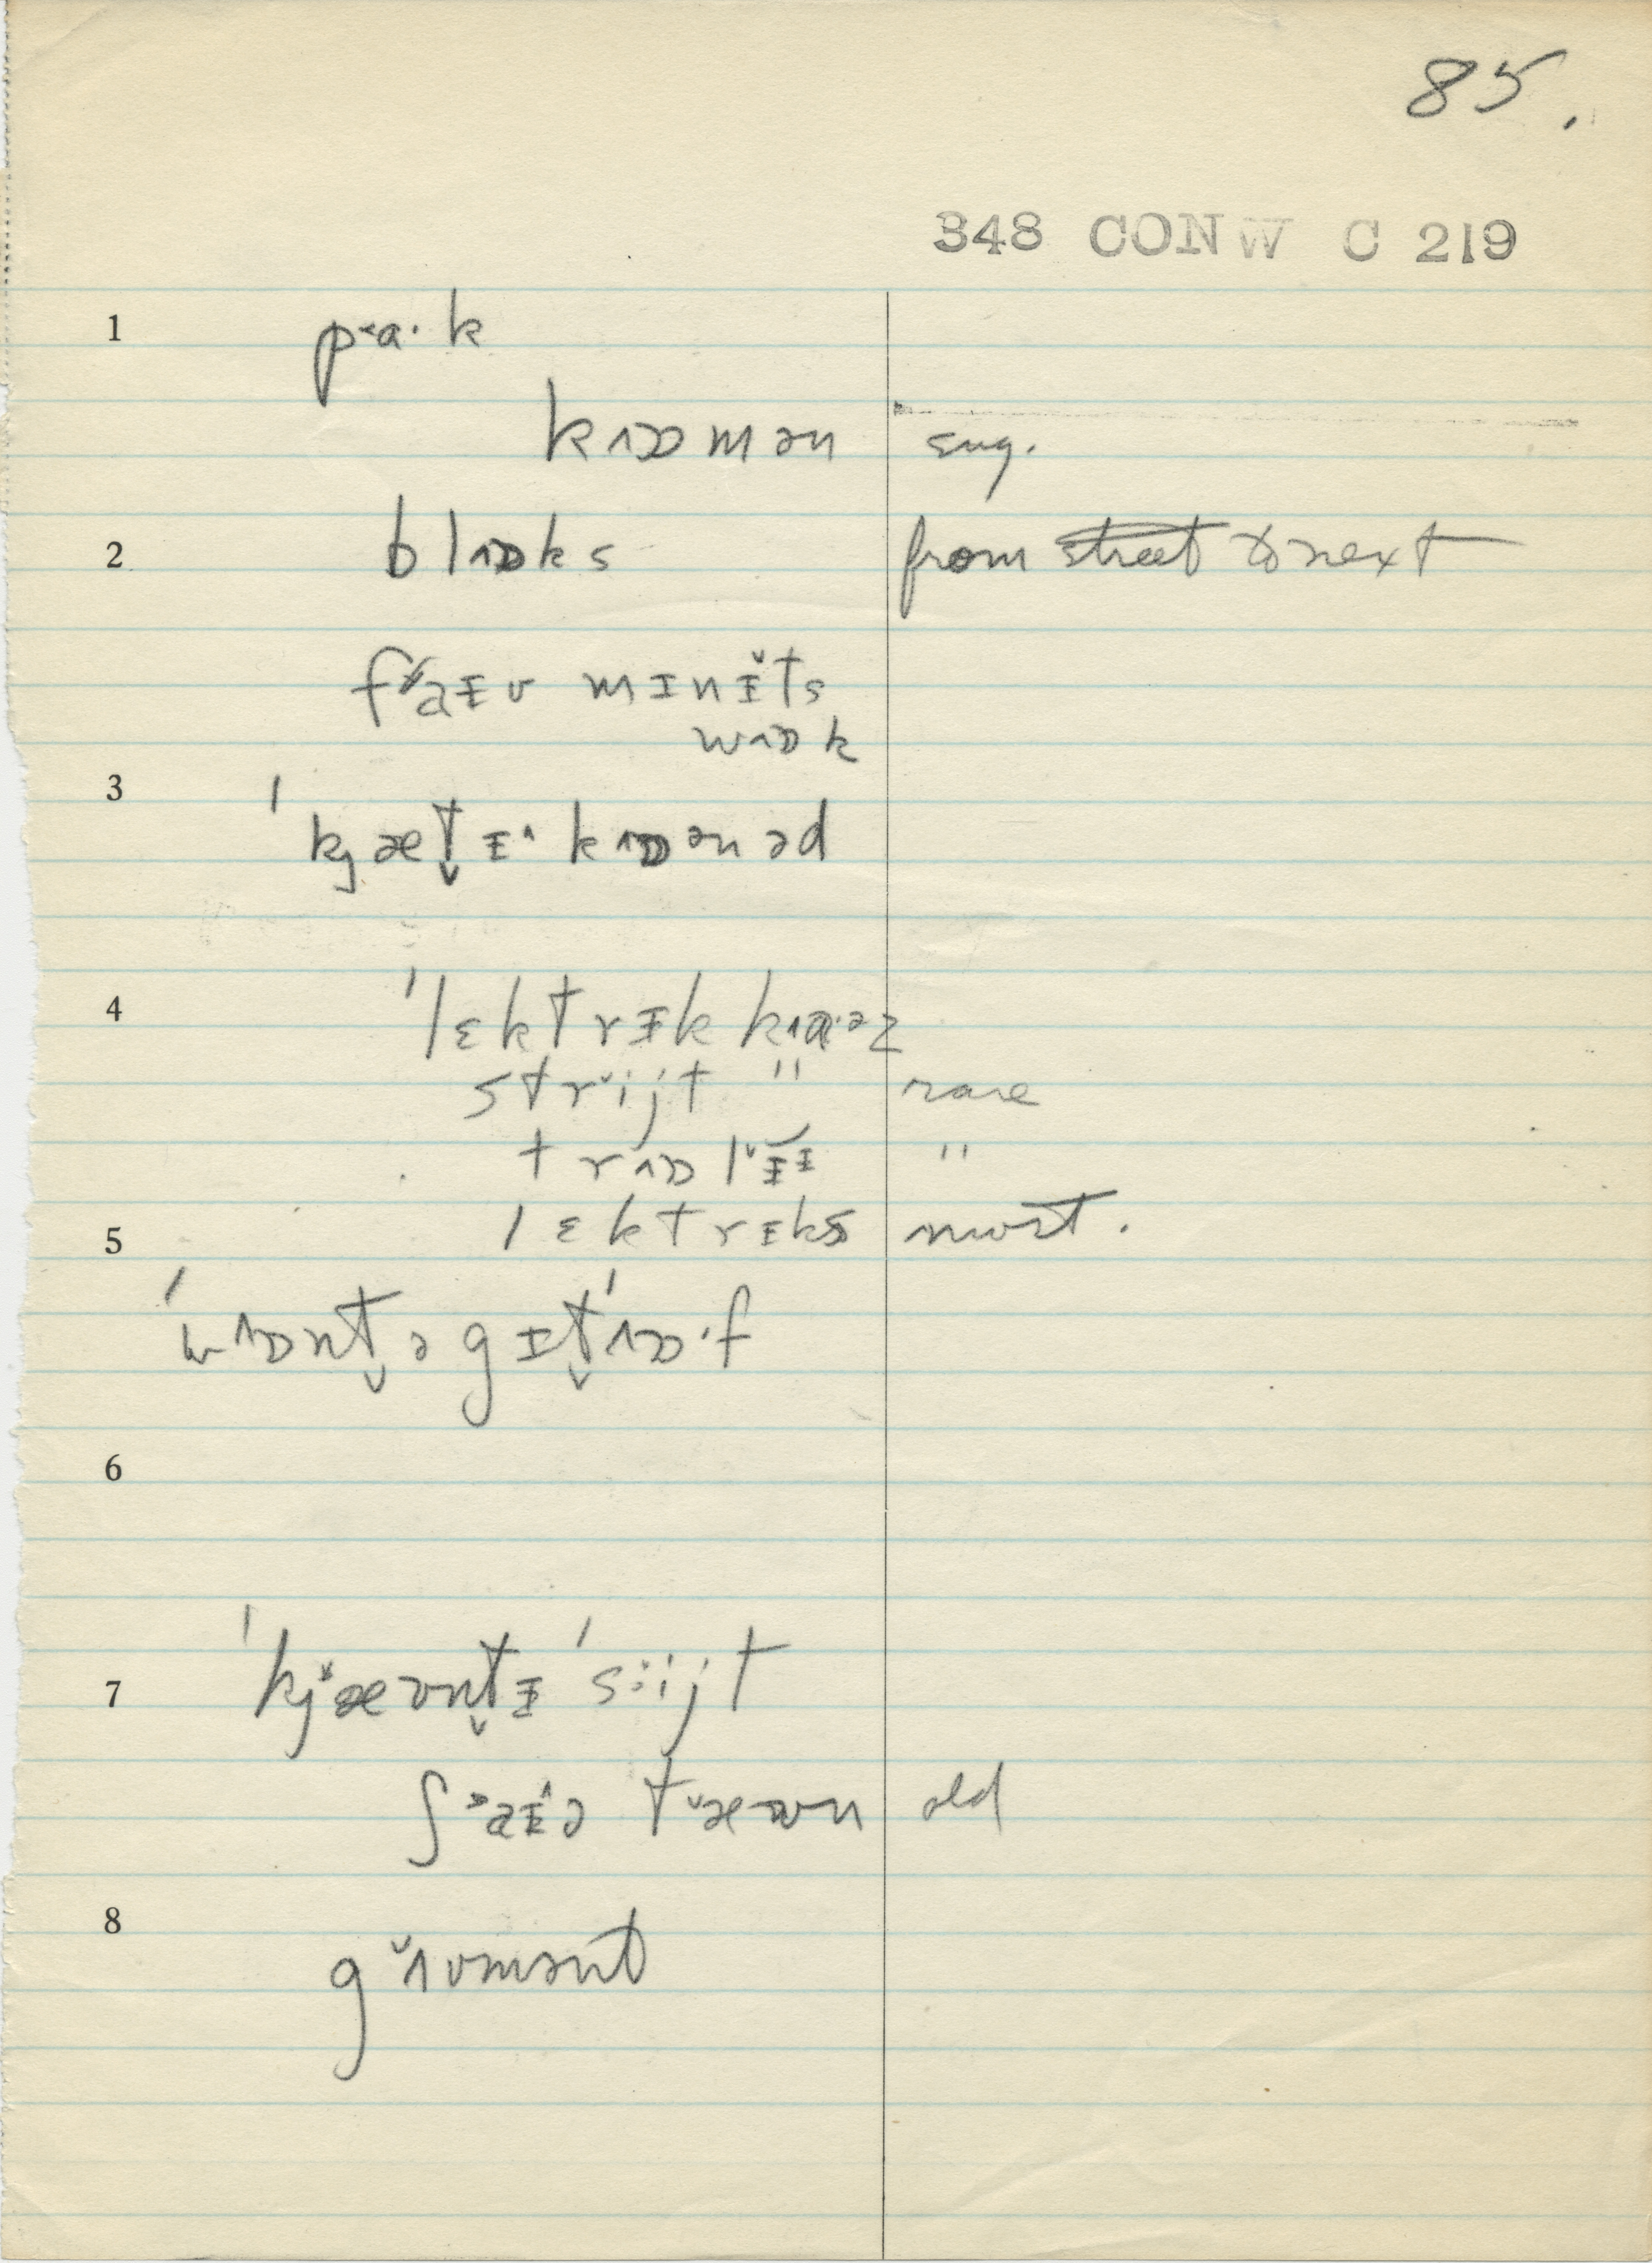 85.
348 CONW C 219
1
p˂a·k
kɒmən eng.
2 blɒks from street to next
faɪv mɪnɪ̆ts
wɒk
3
'kjæt̬ɪ^ kɒənəd
4 'lɛktrɪk kaəz
strĭjt " rare
trɒlɪ "
5 lɛktrɪks most.
'wɒnt̬ə gɪt̬'ɒ·f
6
7 'kjæʊnt̬ɪ 'sĭijt
ʃaɪə tæʊn old
8
gʌvmənt